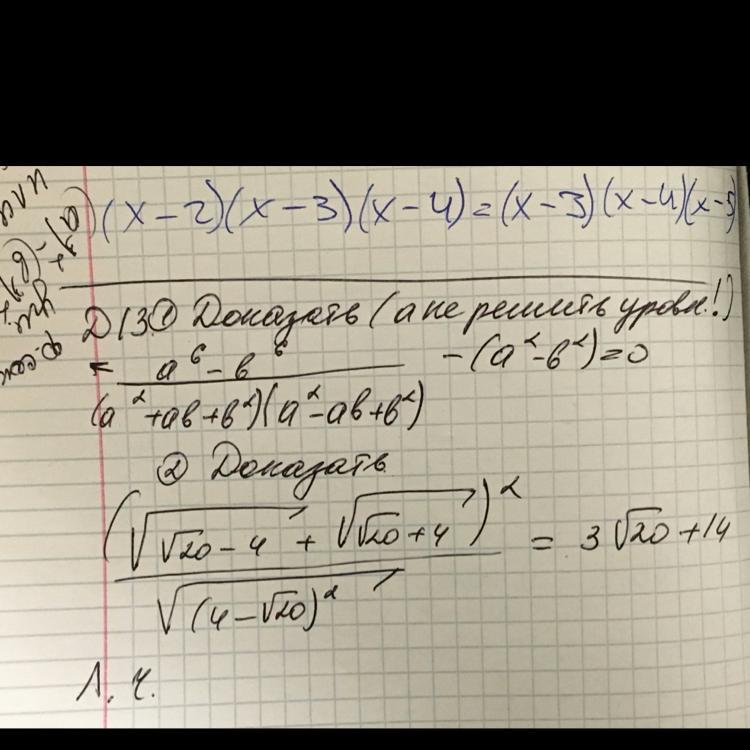 (x-2)(x-3)(x-4)=(x-3)(x-4)(x-5)
Д/З ① Доказать (а не решить уравн.!)
a⁶-b⁶ / (a²+ab+b²)(a²-ab+b²) -(a²-b²)=0
② Доказать
(√(√20-4) + √(√20+4))² / √((4-√20)²) = 3√20+14
Л. ч.